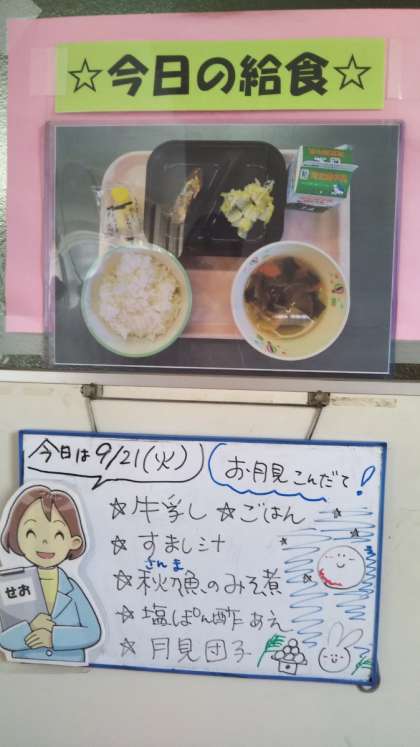 ☆今日の給食☆
今日は9/21(火)
お月見こんだて!
☆牛乳 ☆ごはん
☆すまし汁
さんま
☆秋刀魚のみそ煮
☆塩ぽん酢あえ
☆月見団子
せお